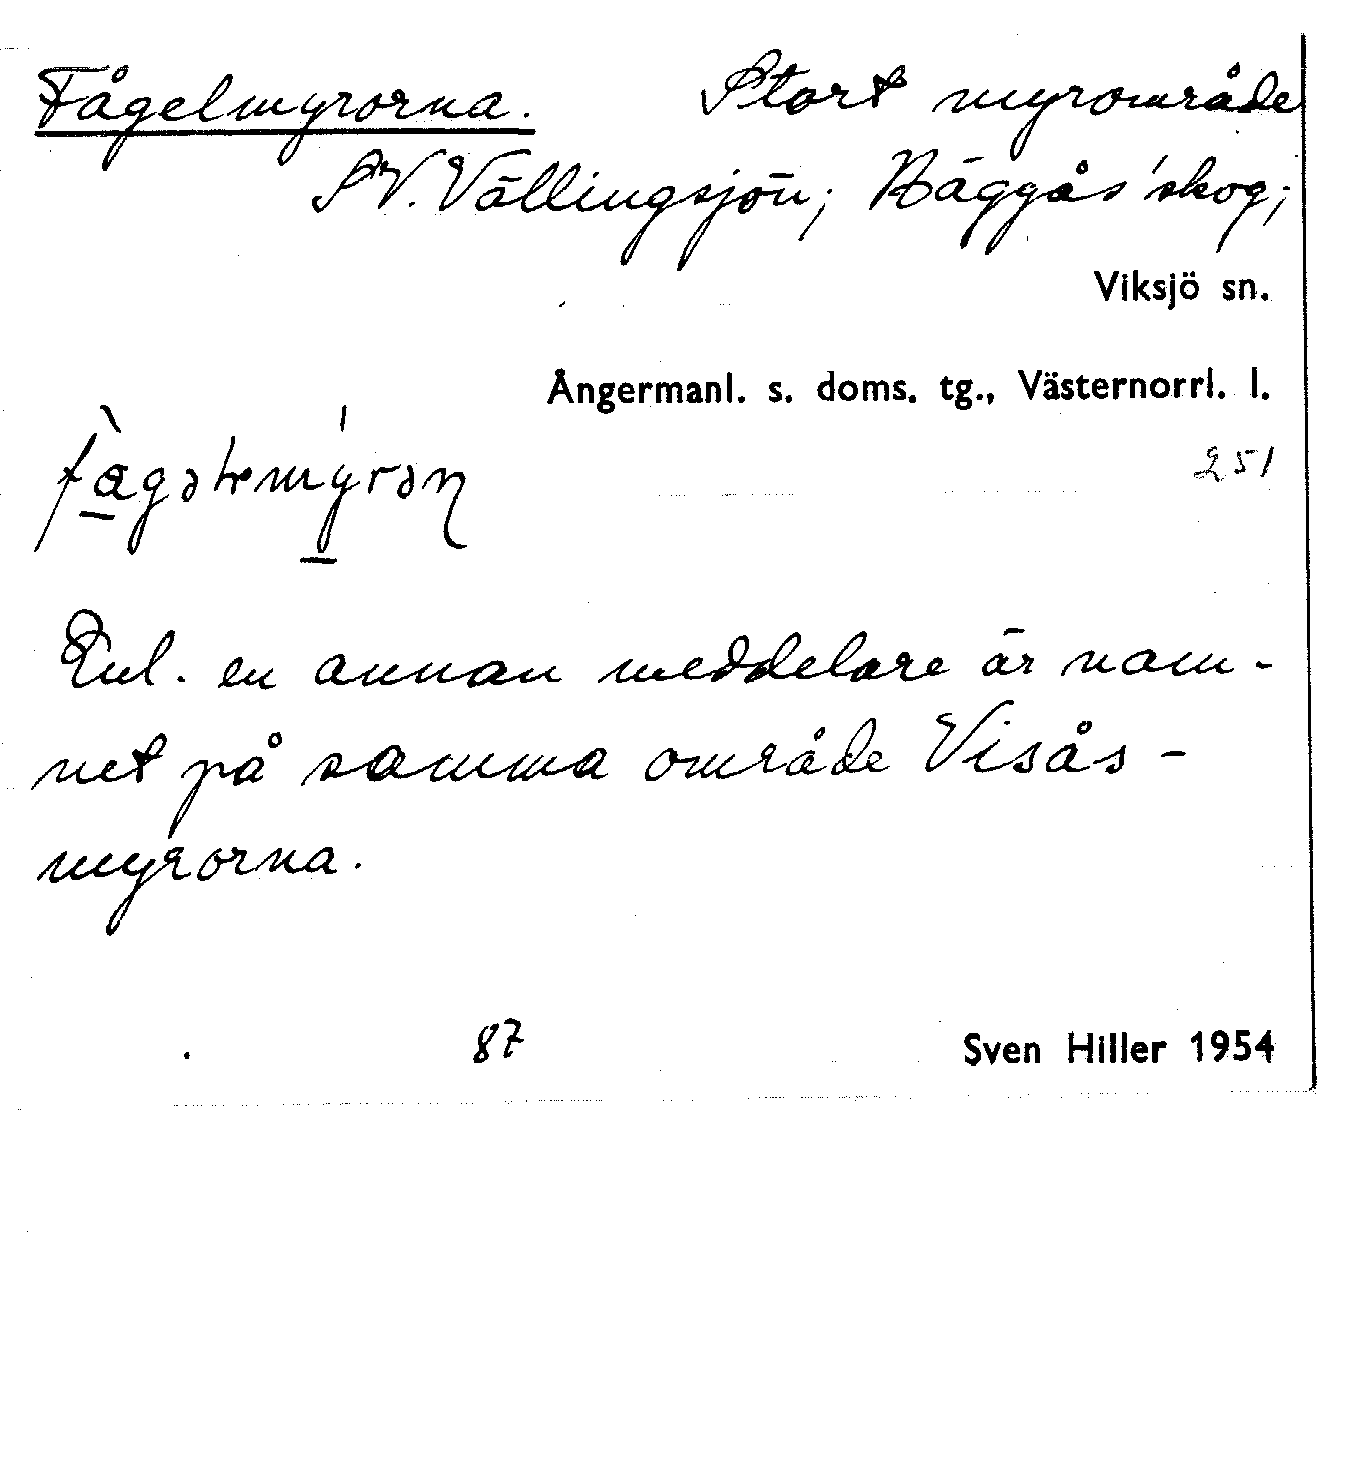 Fågelmyrorna. Stort myrområde
SV. Vällingsjön; Häggås' skog;
Viksjö sn.
Ångermanl. s. doms. tg., Västernorrl. l.
251
Enl. en annan meddelare är nam-
net på samma område Visås-
myrorna.
87 Sven Hiller 1954